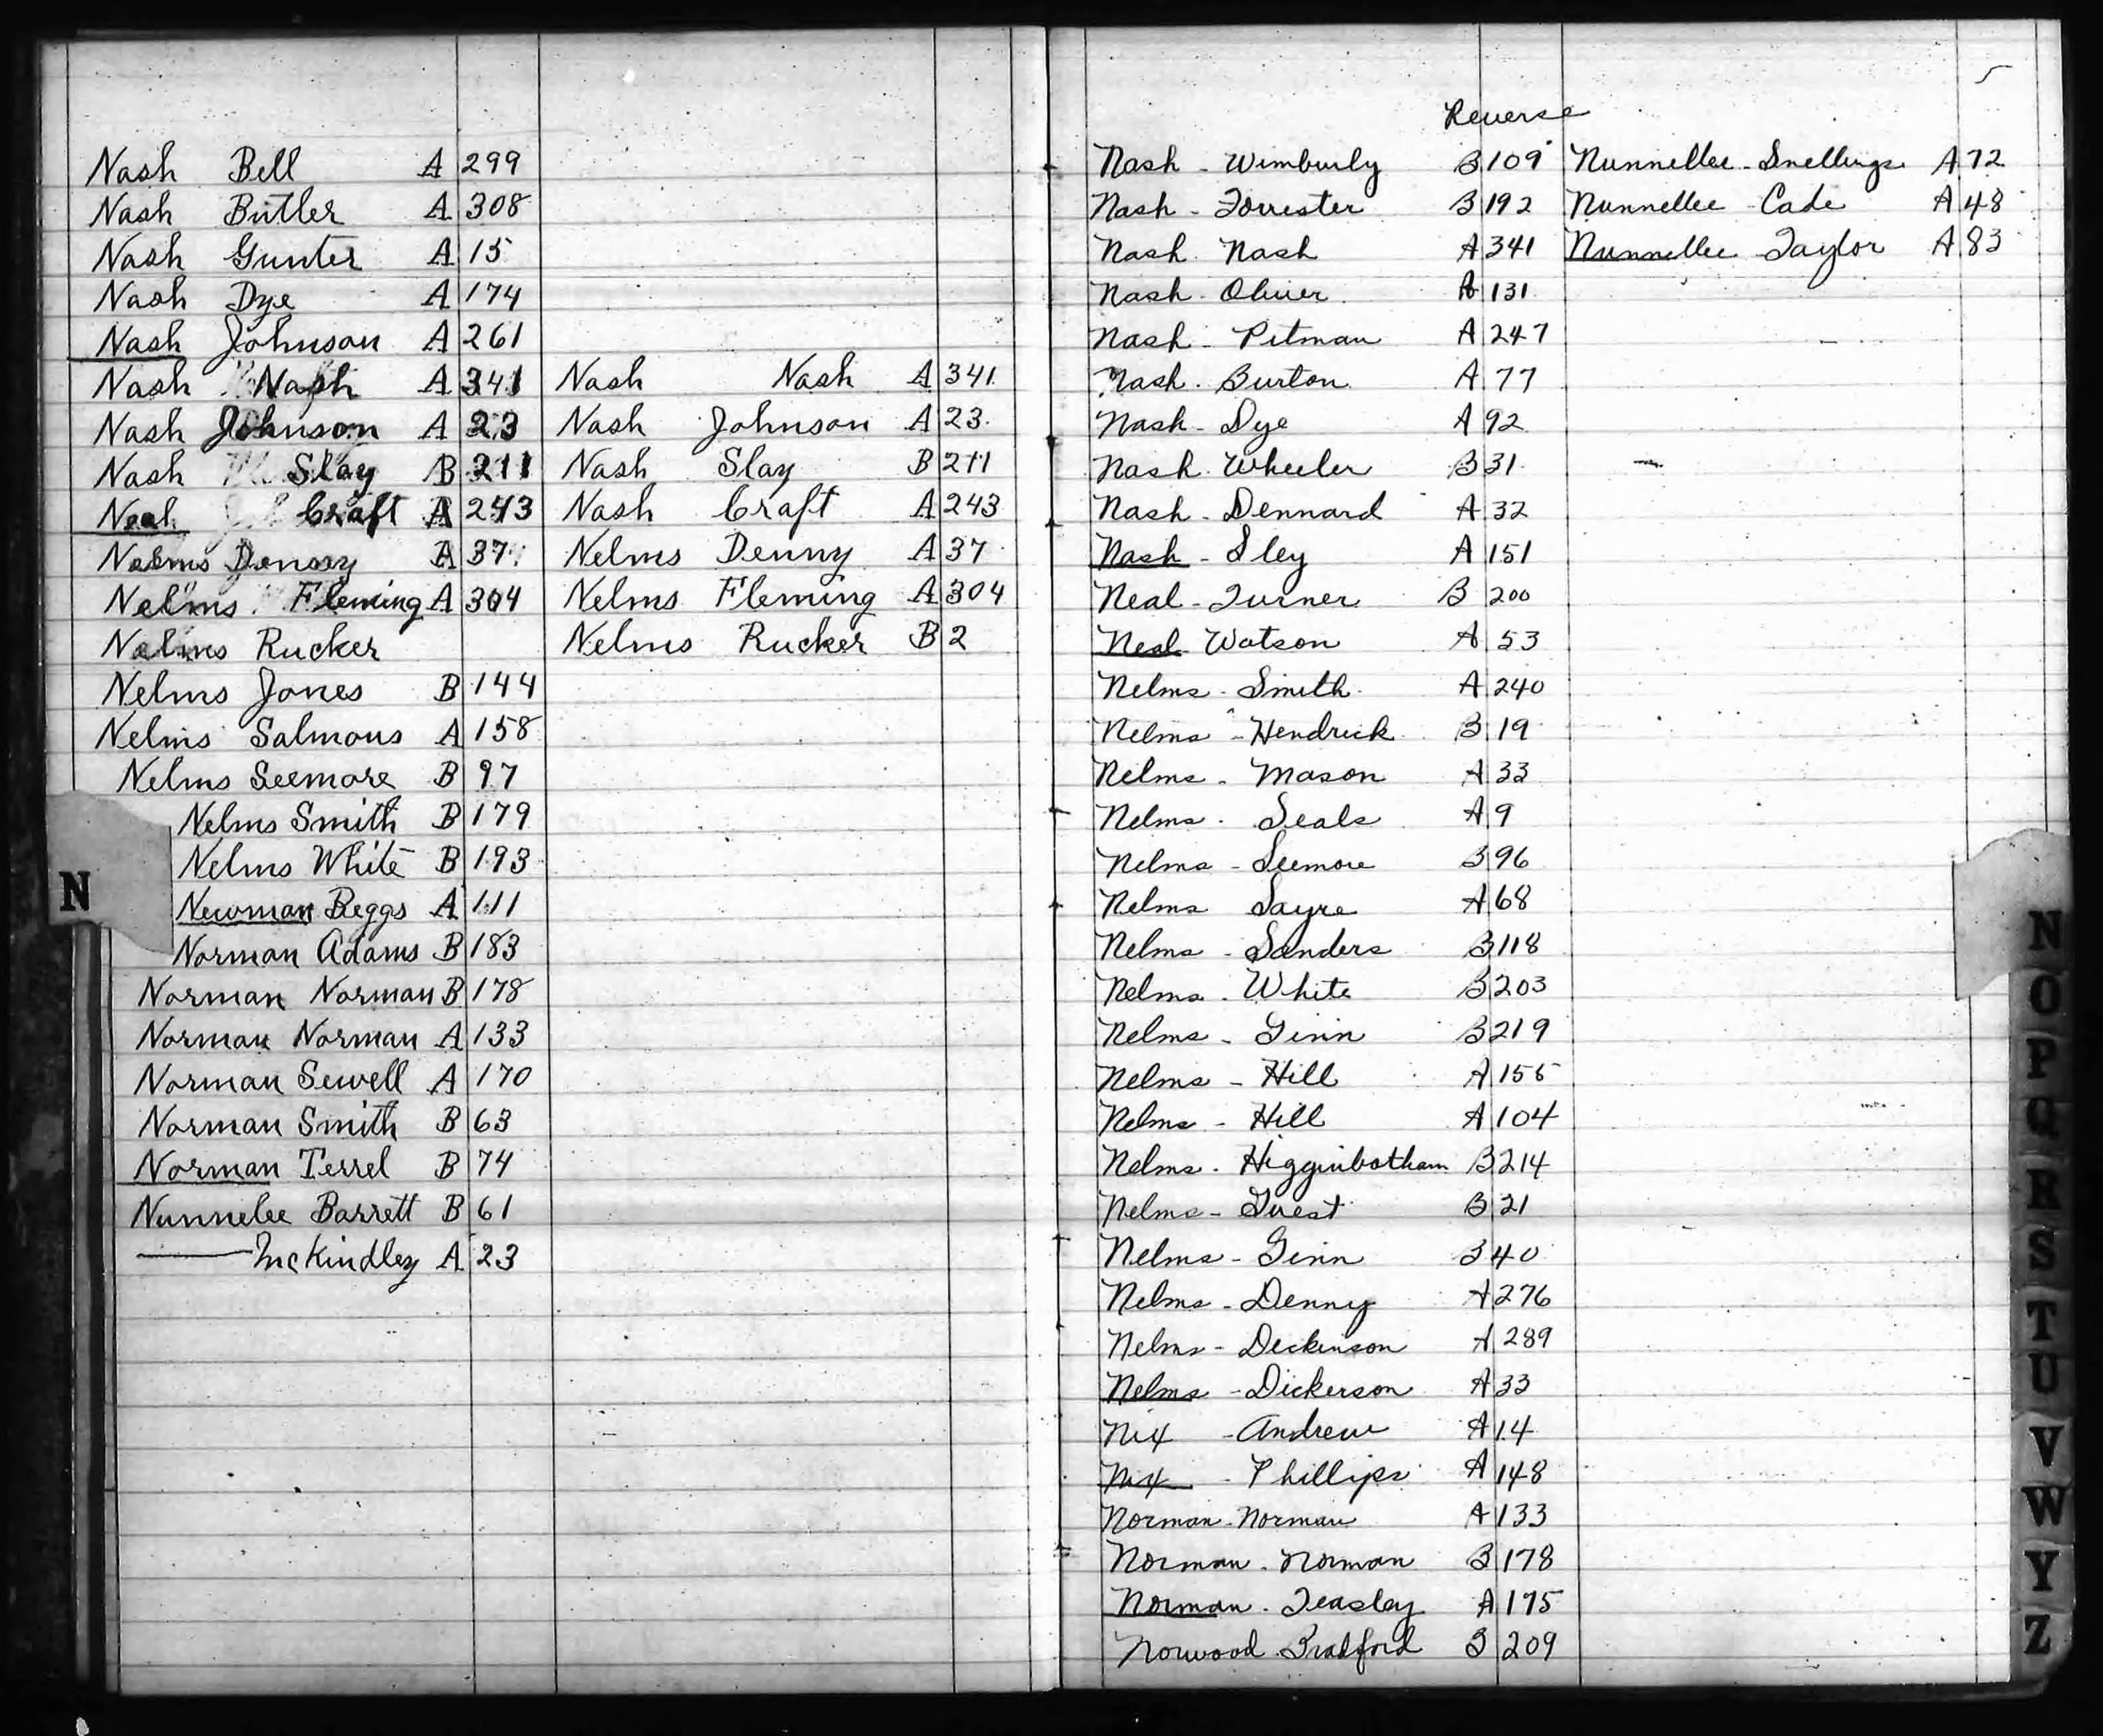 Nash Bell A 299
Nash Butler A 308
Nash Gunter A 15
Nash Dye A 174
Nash Johnson A 261
Nash Nash A 341 Nash Nash A 341
Nash Johnson A 23 Nash Johnson A 23
Nash Slay B 211 Nash Slay B 211
Neal Craft A 243 Nash Craft A 243
Nelms Denny A 37 Nelms Denny A 37
Nelms Fleming A 304 Nelms Fleming A 304
Nelms Rucker Nelms Rucker B 2
Nelms Jones B 144
Nelms Salmons A 158
Nelms Seemore B 97
Nelms Smith B 179
Nelms White B 193
N
Newman Beggs A 111
Norman Adams B 183
Norman Norman B 178
Norman Norman A 133
Norman Sewell A 170
Norman Smith B 63
Norman Terrel B 74
Nunnelee Barrett B 61
——— McKindley A 23
Reverse
Nash - Wimburly B 109 Nunnellee - Snellings A 72
Nash - Forrester B 192 Nunnellee - Cade A 48
Nash - Nash A 341 Nunnellee - Taylor A 83
Nash - Oliver 131
Nash - Pitman A 247
Nash - Burton A 77
Nash - Dye A 92
Nash - Wheeler B 31
Nash - Dennard A 32
Nash - Sley A 151
Neal - Turner B 200
Neal - Watson A 53
Nelms - Smith A 240
Nelms - Hendrick B 19
Nelms - Mason A 33
Nelms - Seals A 9
Nelms - Seemore B 96
Nelms Sayre A 68
Nelms - Sanders B 118
Nelms - White B 203
Nelms - Ginn B 219
Nelms - Hill A 155
Nelms - Hill A 104
Nelms - Higginbotham B 214
Nelms - Guest B 21
Nelms - Ginn B 40
Nelms - Denny A 276
Nelms - Dickinson A 289
Nelms - Dickerson A 33
Nix - Andrew A 14
Nix - Phillips A 148
Norman - Norman A 133
Norman - Norman B 178
Norman - Teasley A 175
Norwood - Bradford B 209
N
O
P
Q
R
S
T
U
V
W
Y
Z